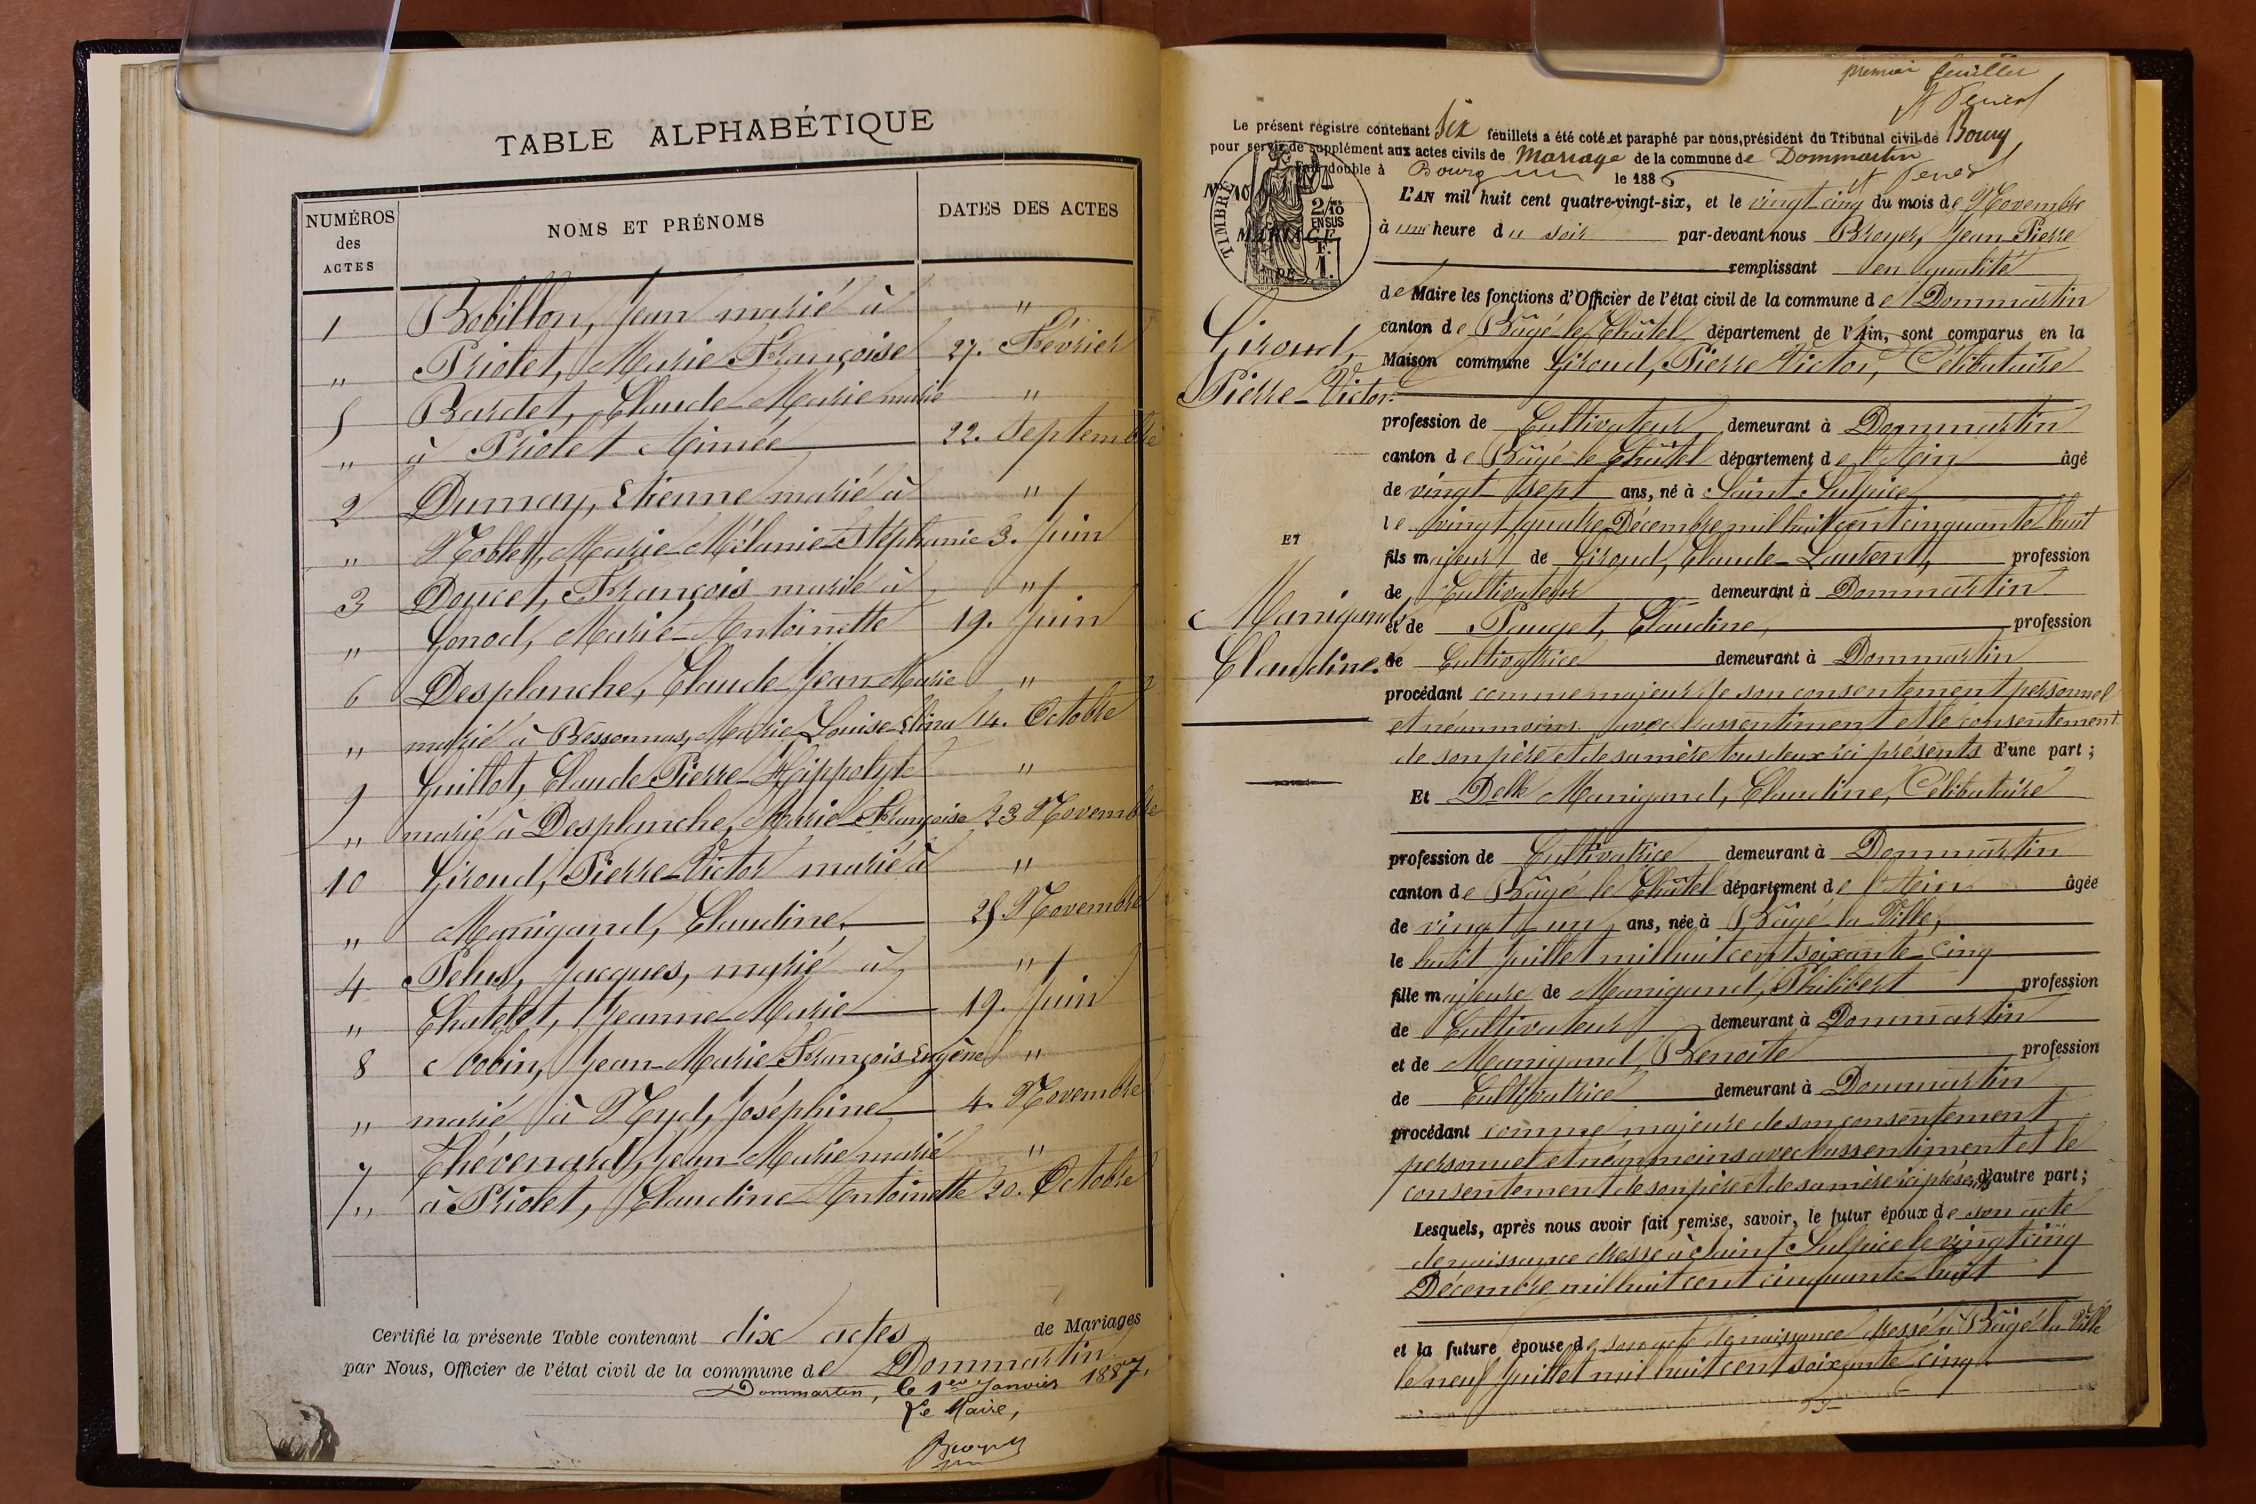 TABLE ALPHABÉTIQUE
NUMÉROS des ACTES
NOMS ET PRÉNOMS
DATES DES ACTES
1 Bobillon, Jean marié à "
" Priolet, Marie Françoise 27. Février
5 Bardet, Claude Marie marié "
" à Priolet Aimée 22. Septembre
2 Dumay, Etienne marié à "
" Noblet, Marie Mélanie Stéphanie 3. Juin
3 Doucet, François marié à "
" Gonod, Marie-Antoinette 19. Juin
6 Desplanche, Claude Jean Marie "
" marié à Bessonnas, Marie Louise Elina 14. Octobre
9 Guillot, Claude Pierre-Hippolyte "
" marié à Desplanche, Marie-Françoise 23 Novembre
10 Giroud, Pierre-Victor marié à "
" Manigand, Claudine. 25 Novembre
4 Pelus, Jacques, marié à "
" Chatelet, Jeanne-Marie 19. Juin
8 Robin, Jean-Marie François-Eugène "
" marié à Neyd, Joséphine 4. Novembre
7 Thévenard, Jean-Marie marié "
" à Priolet, Claudine-Antoinette 20. Octobre
Certifié la présente Table contenant dix actes de Mariages
par Nous, Officier de l'état civil de la commune de Dommartin
Dommartin, le 1er Janvier 1887.
Le Maire,
Broyer
premier feuillet
Le présent registre contenant six feuillets a été coté et paraphé par nous, président du Tribunal civil de Bourg
pour servir de supplément aux actes civils de Mariage de la commune de Dommartin
Fait double à Bourg le 188
TIMBRE
2/10 EN SUS
MARIAGE
F. 1.
N° 10
L'AN mil huit cent quatre-vingt-six, et le vingt-cinq du mois de Novembre
à une heure du soir par-devant nous Broyer, Jean Pierre
remplissant en qualité
de Maire les fonctions d'Officier de l'état civil de la commune de Dommartin
canton de Bâgé-le-Châtel département de l'Ain, sont comparus en la
Maison commune Giroud, Pierre Victor, Célibataire
Giroud,
Pierre-Victor
profession de Cultivateur demeurant à Dommartin
canton de Bâgé-le-Châtel département de l'Ain âgé
de vingt-sept ans, né à Saint-Sulpice
le vingt quatre Décembre mil huit cent cinquante-huit
fils majeur de Giroud, Claude-Laurent, profession
de Cultivateur demeurant à Dommartin
et de Pauget, Claudine, profession
de Cultivatrice demeurant à Dommartin
ET
Manigand
Claudine.
procédant comme majeur de son consentement personnel
et néanmoins avec l'assentiment et le consentement
de son père et de sa mère tous deux ici présents d'une part ;
Et Delle Manigand, Claudine, Célibataire
profession de Cultivatrice demeurant à Dommartin
canton de Bâgé-le-Châtel département de l'Ain âgée
de vingt-un ans, née à Bâgé-la-Ville,
le huit Juillet mil huit cent soixante-cinq
fille majeure de Manigand, Philibert profession
de Cultivateur demeurant à Dommartin
et de Manigand, Benoite profession
de Cultivatrice demeurant à Dommartin
procédant comme majeure de son consentement
personnel et néanmoins avec l'assentiment et le
consentement de son père et de sa mère ici présents d'autre part ;
Lesquels, après nous avoir fait remise, savoir, le futur époux de son acte
de naissance dressé à Saint Sulpice le vingt cinq
Décembre mil huit cent cinquante-huit
et la future épouse de son acte de naissance dressé à Bâgé-la-Ville
le neuf Juillet mil huit cent soixante-cinq.